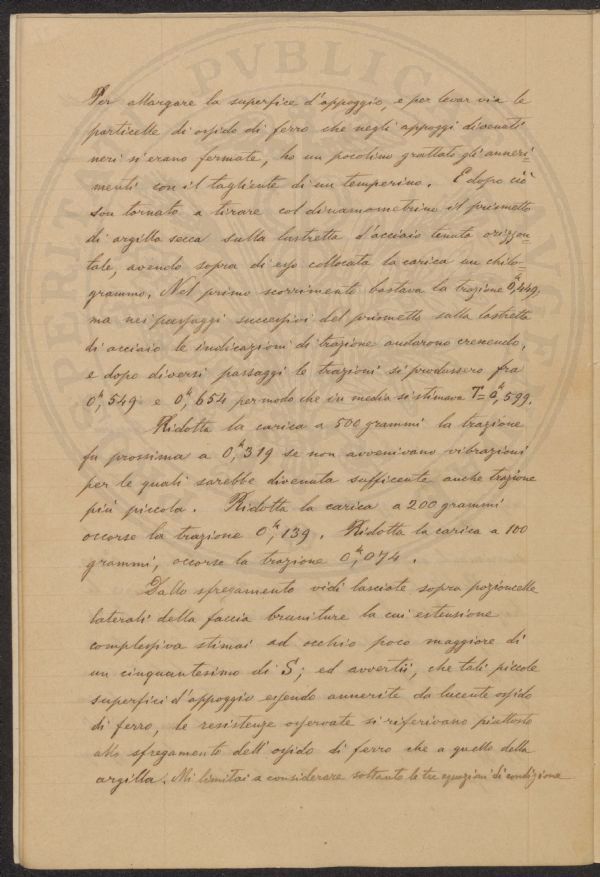 Per allargare la superfice d'appoggio, e per levar via le
particelle di ossido di ferro che negli appoggi divenuti
neri si erano formate, ho un pocolino grattato gli anneri=
menti con il tagliente di un temperino. E dopo ciò
son tornato a tirare col dinamometrino il prismetto
di argilla secca sulla lastretta d'acciaio tenuta orizzon=
tale, avendo sopra di esso collocata la carica un chilo=
grammo. Nel primo scorrimento bastava la trazione 0,ᵏ449,
ma nei passaggi successivi del prismetto sulla lastretta
di acciaio le indicazioni di trazione andarono crescendo,
e dopo diversi passaggi le trazioni si produssero fra
0,ᵏ549 e 0,ᵏ654 per modo che in media si stimava T=0,ᵏ599.
Ridotta la carica a 500 grammi la trazione
fu prossima a 0,ᵏ319 se non avvenivano vibrazioni
per le quali sarebbe divenuta sufficente anche trazione
più piccola. Ridotta la carica a 200 grammi
occorse la trazione 0,ᵏ139. Ridotta la carica a 100
grammi, occorse la trazione 0,ᵏ074.
Dallo sfregamento vidi lasciate sopra pozioncelle
laterali della faccia bruniture la cui estensione
complessiva stimai ad occhio poco maggiore di
un cinquantesimo di S; ed avvertii, che tali piccole
superfici d'appoggio essendo annerite da lucente ossido
di ferro, le resistenze osservate si riferivano piuttosto
allo sfregamento dell'ossido di ferro che a quello della
argilla. Mi limitai a considerare soltanto le tre equazioni di condizione